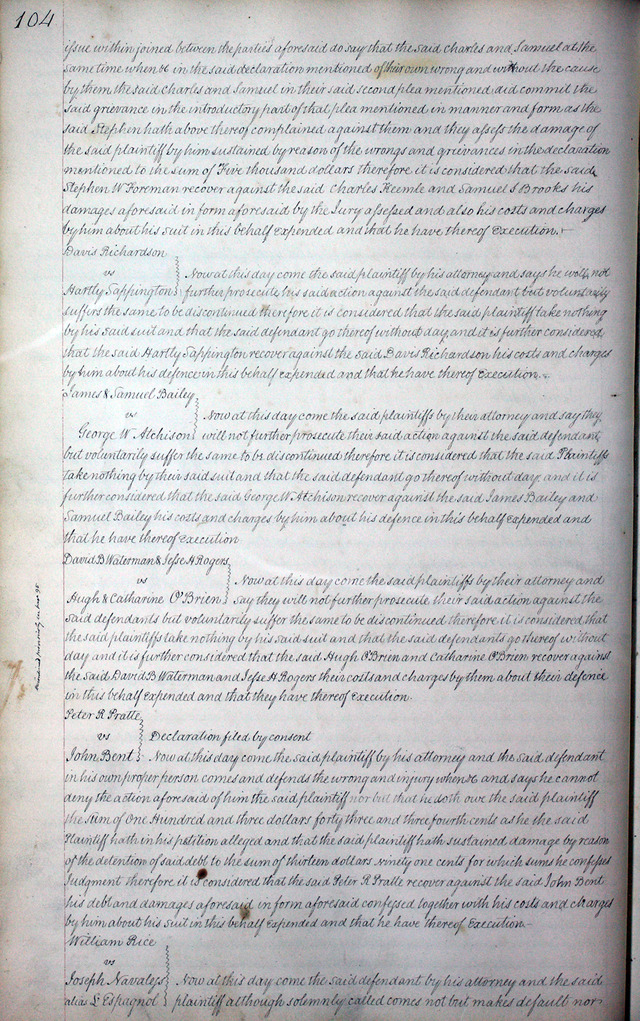 104
issue within joined between the parties aforesaid do say that the said Charles and Samuel at the
same time when &c in the said declaration mentioned of their own wrong and without the cause
by them the said Charles and Samuel in their said second plea mentioned did commit the
said grievance in the introductory part of that plea mentioned in manner and form as the
said Stephen hath above thereof complained against them and they assess the damage of
the said plaintiff by him sustained by reason of the wrongs and grievances in the declaration
mentioned to the sum of Five thousand dollars therefore it is considered that the said
Stephen W Foreman recover against the said Charles Keemle and Samuel S Brooks his
damages aforesaid in form aforesaid by the Jury assessed and also his costs and charges
by him about his suit in this behalf expended and that he have thereof Execution.
Davis Richardson
vs
Now at this day come the said plaintiff by his attorney and says he will not
Hartly Sappington further prosecute his said action against the said defendant but voluntarily
suffers the same to be discontinued therefore it is considered that the said plaintiff take nothing
by his said suit and that the said defendant go thereof without day and it is further considered
that the said Hartly Sappington recover against the said Davis Richardson his costs and charges
by him about his defence in this behalf expended and that he have thereof Execution.
James & Samuel Bailey
vs
Now at this day come the said plaintiffs by their attorney and say they
George W Atchison will not further prosecute their said action against the said defendant
but voluntarily suffer the same to be discontinued therefore it is considered that the said Plaintiffs
take nothing by their said suit and that the said defendant go thereof without day and it is
further considered that the said George W Atchison recover against the said James Bailey and
Samuel Bailey his costs and charges by him about his defence in this behalf expended and
that he have thereof Execution
David B Waterman & Jesse H Rogers
vs
Now at this day come the said plaintiffs by their attorney and
Hugh & Catharine O'Brien say they will not further prosecute their said action against the
said defendants but voluntarily suffer the same to be discontinued therefore it is considered that
the said plaintiffs take nothing by his said suit and that the said defendants go thereof without
day and it is further considered that the said Hugh O'Brien and Catharine O'Brien recover against
the said David B Waterman and Jesse H Rogers their costs and charges by them about their defence
in this behalf expended and that they have thereof execution.
Peter R Pratte
vs Declaration filed by consent
John Bent Now at this day come the said plaintiff by his attorney and the said defendant
in his own proper person comes and defends the wrong and injury when &c and says he cannot
deny the action aforesaid of him the said plaintiff nor but that he doth owe the said plaintiff
the sum of One Hundred and three dollars forty three and three fourth cents as he the said
Plaintiff hath in his petition alleged and that the said plaintiff hath sustained damage by reason
of the detention of said debt to the sum of thirteen dollars ninety one cents for which sums he confesses
Judgment therefore it is considered that the said Peter R Pratte recover against the said John Bent
his debt and damages aforesaid in form aforesaid confessed together with his costs and charges
by him about his suit in this behalf expended and that he have thereof Execution.
William Rice
vs
Joseph Navaless Now at this day come the said defendant by his attorney and the said
alias L'Espagnol plaintiff although solemnly called comes not but makes default nor